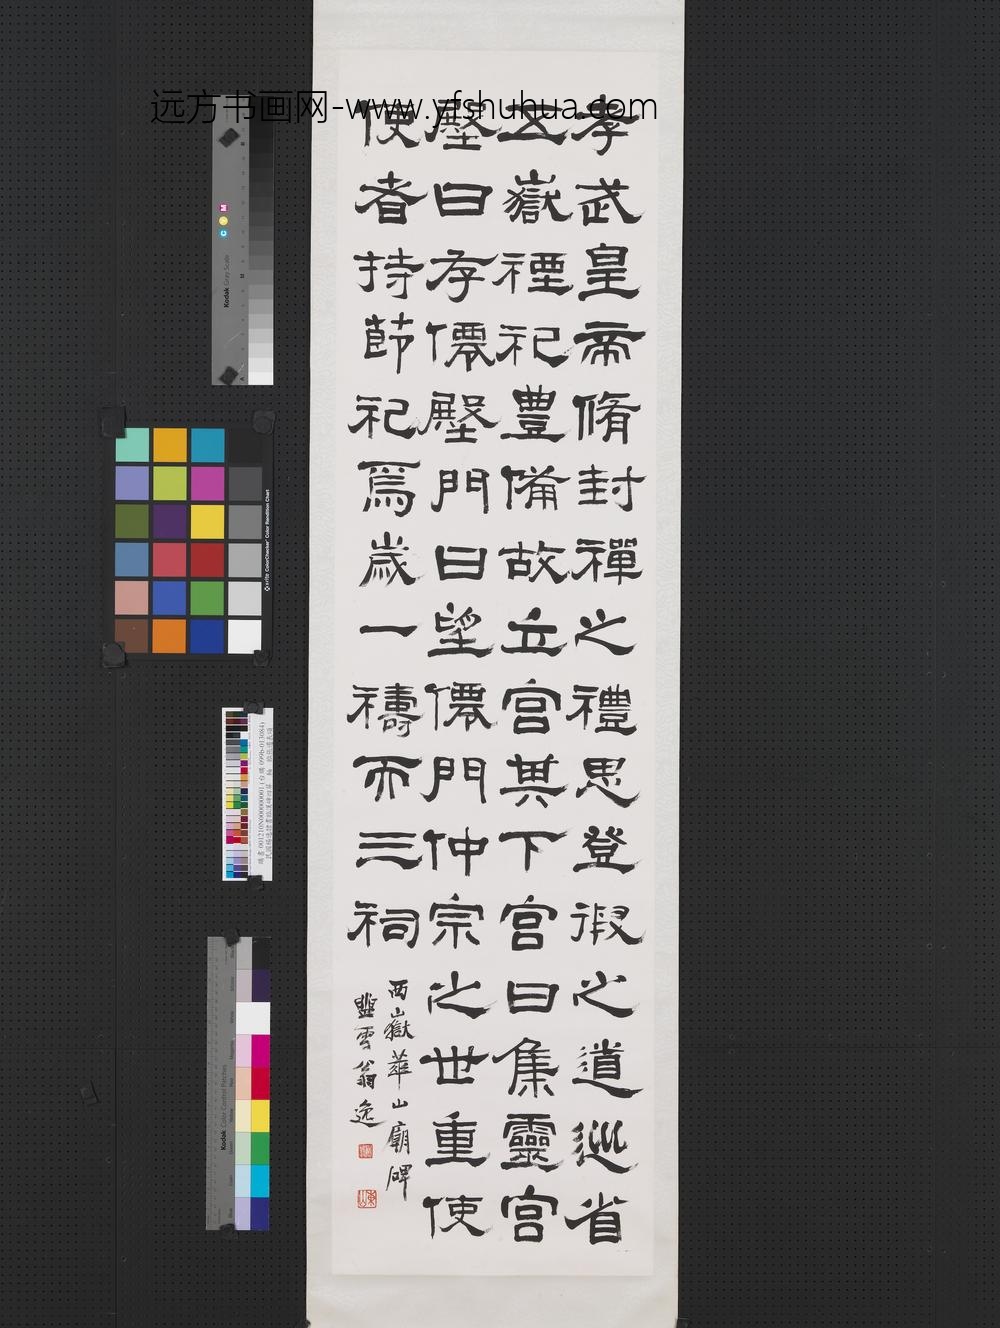 远方书画网-www.yfshuhua.com
孝武皇帝脩封禪之禮思登徦之道巡省
五嶽禋祀豊備故立宮其下宮曰集靈宮
壂曰存僊壂門曰望僊門仲宗之世重使
使者持節祀焉歲一禱而三祠
西嶽華山廟碑
雲翁逸
Kodak Gray Scale
C Y M
x-rite ColorChecker Color Rendition Chart
Kodak Color Control Patches